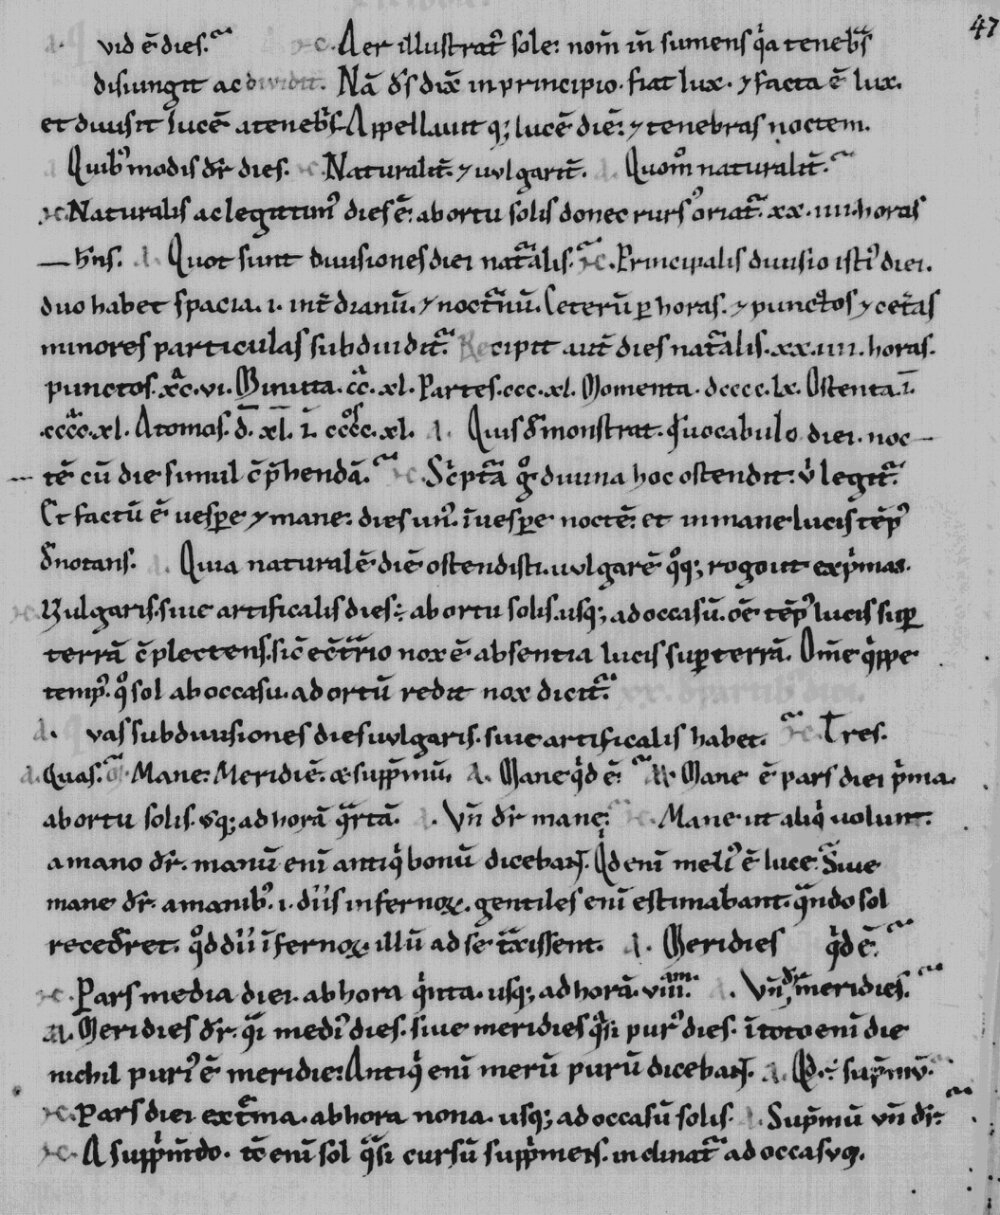 47
Δ. vid ē dies. ϗ. Aer illustrat᷒ sole: nom̄ īn sumens qͥa tenebͥs
disiungit ac dividit. Nā dͥs dix̄ in principio. fiat lux. ⁊ facta ē lux.
et diuisit lucē a tenebͥs. Appellauit q; lucē diē: ⁊ tenebras noctem.
Δ Quibꝰ modis dr̄ dies. ϗ. Naturalit̄. ⁊ uulgarit̄. Δ. Quom̊ naturalit̄.
ϗ. Naturalis ac legittimꝰ dies ē: ab ortu solis donec rursꝰ oriat᷒. xx. iiii. horas
hn̄s. Δ. Quot sunt diuisiones diei nat᷒alis. ϗ. Principalis diuisio istiꝰ diei.
duo habet spacia. i. int̄dianū. ⁊ noct᷒nū. Ceterū ꝑ horas. ⁊ punctos ⁊ cet̄as
minores particulas subdiuidit᷒. Recipit aut̄ dies nat᷒alis. xx. iiii. horas.
punctos. xͣc. vi. Minuta. cͣc. xl. Partes. ccc. lx. Momenta. dcccc. lx. Ostenta. ī.
.ccͣcc. xl. Atomos. d̄. xl̄. ī. cccͦc. xl. Δ. Quis dm̄onstrat. qͥ uocabulo diei. noc
tē cū die simul c̄p̄hendā. ϗ. Scͥpt᷒a g̊ diuina hoc ostendit: uͥ legit᷒.
Et factū ē uesꝑe ⁊ mane: dies unꝰ. ī uesꝑe noctē: et in mane lucis tēpꝰ
dn̄otans. Δ. Quia naturalē diē ostendisti. uulgarē qͦq; rogo ut exp̄mas.
ϗ. Vulgaris. siue artificalis dies: ab ortu solis. usq; ad occasū. oē tēpꝰ lucis suꝑ
terrā c̄plectens. sic̄ ec̄t᷒rio nox ē absentia lucis suꝑ terrā. Om̄e qͥppe
tempꝰ. qͦ sol ab occasu. ad ortū redit nox dicit᷒.
Δ. vas subdiuisiones dies uulgaris. siue artificalis habet. ϗ. Tres.
Δ. Quas. ϗ. Mane: Meridiē. & supp̄mū. Δ. Mane qͥd ē: ϗ. Mane ē pars diei pͥma.
ab ortu solis. usq; ad horā qͣrtā. Δ. Vn̄ dr̄ mane: ϗ. Mane ut aliqͥ uolunt.
a mano dr̄. manū enī antiqͥ bonū dicebaɴᴛ. Qͥd enī meliꝰ ē luce. Siue
mane dr̄. a manibꝰ. i. diis infernoꝝ. gentiles enī estimabant. qͣndo sol
recedr̄et. qͦd dii īfernoꝝ illū ad se t᷒xissent. Δ. Meridies qͥd ē.
ϗ. Pars media diei. ab hora qͥnta. usq; ad horā. viiiᵃᵐ. Δ. Vn̄ dr̄ meridies.
ϗ. Meridies dr̄. qͣi mediꝰ dies. siue meridies qͣsi purꝰ dies. ī toto enī die
nichil puriꝰ ē meridie: Antiqͥ enī merū purū dicebaɴᴛ. Δ. Qͥd ē sup̄mū.
ϗ. Pars diei ext᷒ma. ab hora nona. usq; ad occasū solis. Δ. Sup̄mū vn̄ dr̄:
ϗ. A supp̄m̄do. tc̄ enī sol qͣsi cursū supp̄mens. inclinat᷒ ad occasuꝫ.